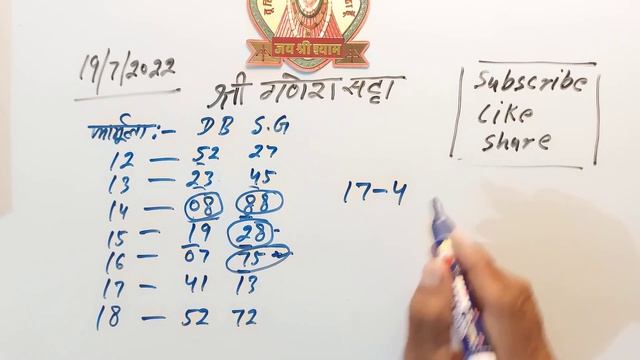 जय श्री श्याम
19/7/2022
श्री गणेश सट्टा
Subscribe
Like
Share
फार्मूला:- DB S.G
12 - 52 27
13 - 23 45
14 - 08 88
15 - 19 28
16 - 07 75
17 - 41 13
18 - 52 72
17-4